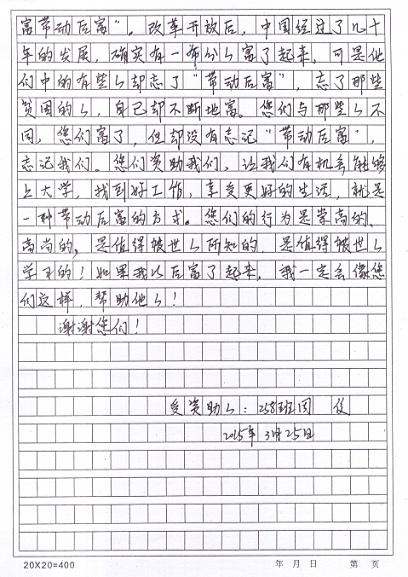 富带动后富"。改革开放后,中国经过了几十
年的发展,确实有一部分人富了起来,可是他
们中的有些人却忘了"带动后富",忘了那些
贫困的人,自己却不断地富。您们与那些人不
同,您们富了,但却没有忘记"带动后富",
忘记我们。您们资助我们,让我们有机会能够
上大学,找到好工作,享受更好的生活,就是
一种带动后富的方式。您们的行为是崇高的、
高尚的,是值得被世人所知的,是值得被世人
学习的!如果我以后富了起来,我一定会像您
们这样,帮助他人!
谢谢您们!
受资助人:258班周
2015年3月25日
20X20=400 年 月 日 第 页